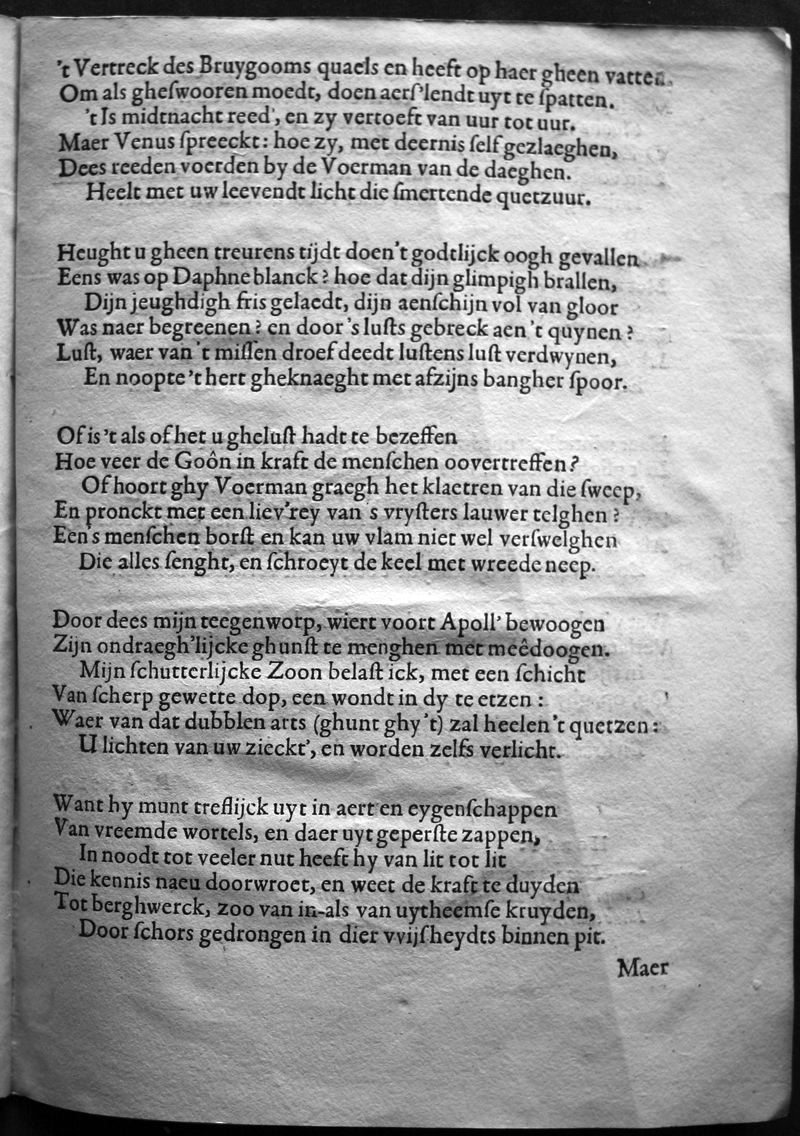 't Vertreck des Bruygooms quaels en heeft op haer gheen vatten.
Om als gheſwooren moedt, doen aerſ'lendt uyt te ſpatten.
't Is midtnacht reed', en zy vertoeft van uur tot uur.
Maer Venus ſpreeckt: hoe zy, met deernis ſelf gezlaeghen,
Dees reeden voerden by de Voerman van de daeghen.
Heelt met uw leevendt licht die ſmertende quetzuur.
Heught u gheen treurens tijdt doen't godtlijck oogh gevallen
Eens was op Daphne blanck? hoe dat dijn glimpigh brallen,
Dijn jeughdigh fris gelaedt, dijn aenſchijn vol van gloor
Was naer begreenen? en door 's luſts gebreck aen 't quynen?
Luſt, waer van 't miſſen droef deedt luſtens luſt verdwynen,
En noopte 't hert gheknaeght met afzijns bangher ſpoor.
Of is 't als of het u gheluſt hadt te bezeffen
Hoe veer de Goôn in kraft de menſchen oovertreffen?
Of hoort ghy Voerman graegh het klaetren van die ſweep,
En pronckt met een liev'rey van 's vryſters lauwer telghen?
Een's menſchen borſt en kan uw vlam niet wel verſwelghen
Die alles ſenght, en ſchroeyt de keel met wreede neep.
Door dees mijn teegenworp, wiert voort Apoll' bewoogen
Zijn ondraegh'lijcke ghunſt te menghen met meêdoogen.
Mijn ſchutterlijcke Zoon belaſt ick, met een ſchicht
Van ſcherp gewette dop, een wondt in dy te etzen:
Waer van dat dubblen arts (ghunt ghy 't) zal heelen 't quetzen:
U lichten van uw zieckt', en worden zelfs verlicht.
Want hy munt treflijck uyt in aert en eygenſchappen
Van vreemde wortels, en daer uyt geperſte zappen,
In noodt tot veeler nut heeft hy van lit tot lit
Die kennis naeu doorwroet, en weet de kraft te duyden
Tot berghwerck, zoo van in-als van uytheemſe kruyden,
Door ſchors gedrongen in dier vvijſheydts binnen pit.
Maer